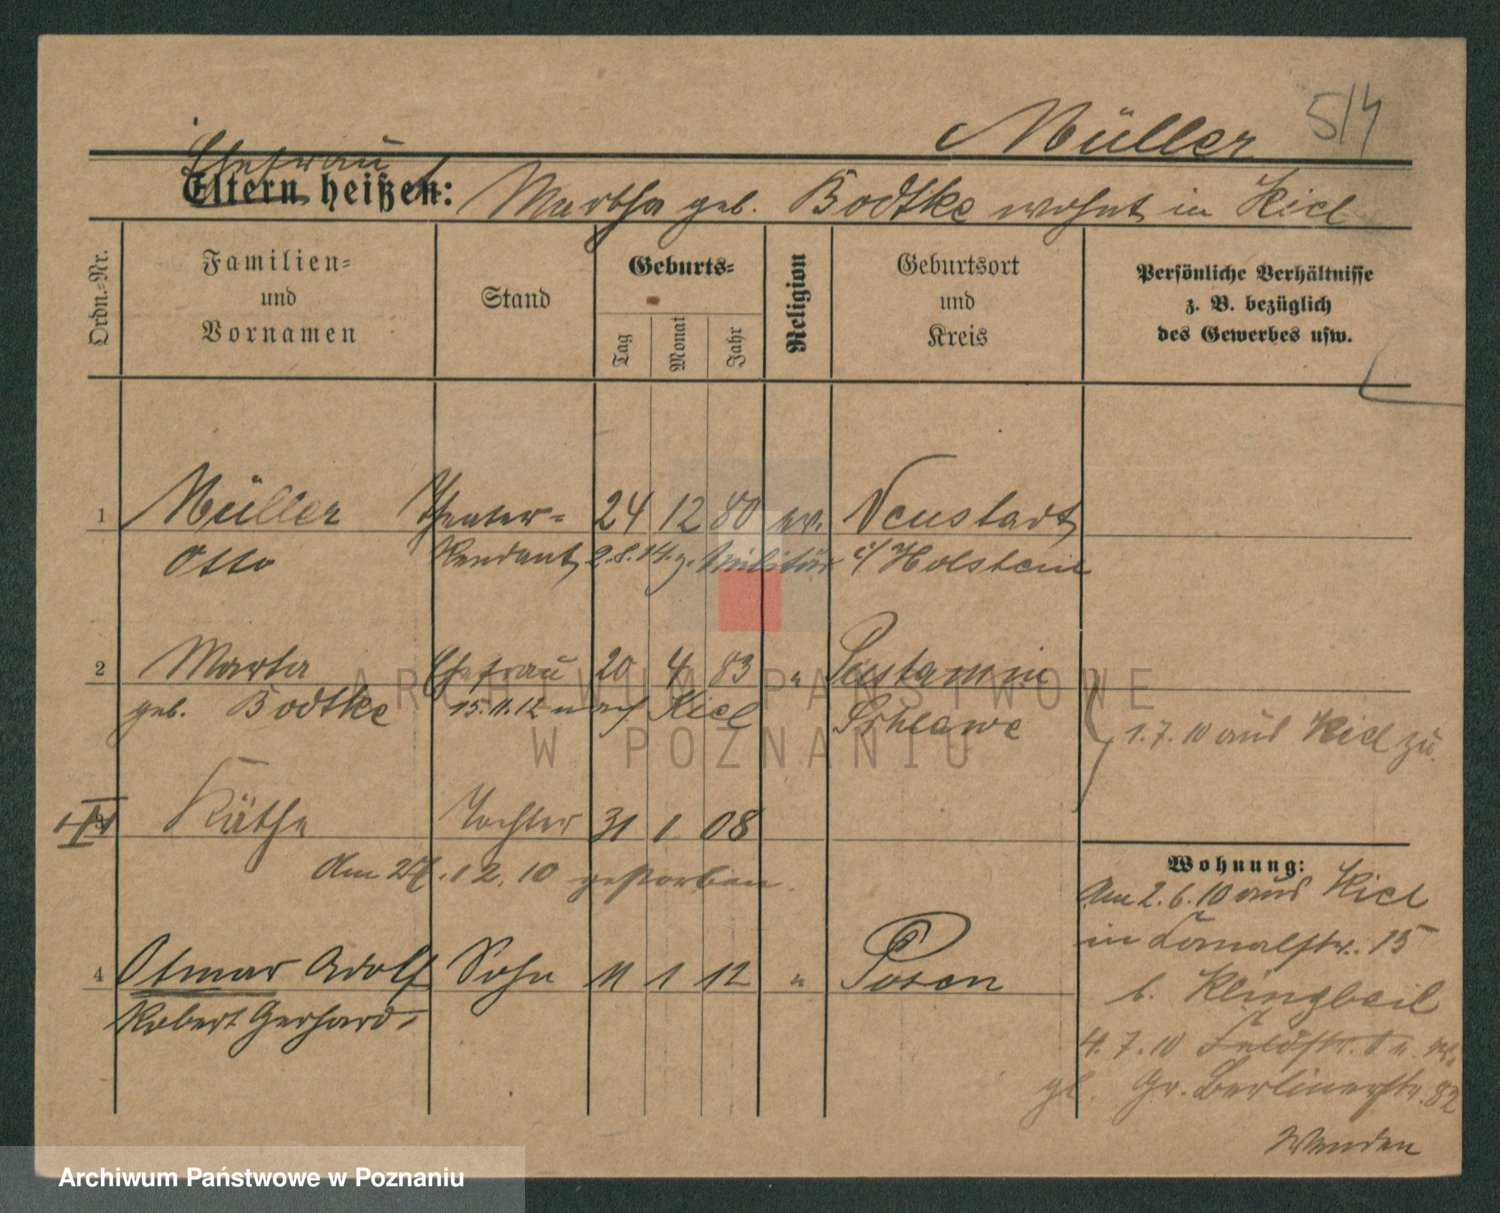 Müller 5/4
Ehefrau
Eltern heißen: Martha geb. Bodtke wohnt in Kiel
Ordn.-Nr.
Familien-
und
Vornamen
Stand
Geburts-
Tag
Monat
Jahr
Religion
Geburtsort
und
Kreis
Persönliche Verhältnisse
z. B. bezüglich
des Gewerbes usw.
1 Müller Theater- 24 12 80 ev. Neustadt
Otto Rendant 2.8.14. z. Militär i/ Holstein
2 Marta Ehefrau 20 4 83 "
geb. Bodtke 15.11.12 nach Kiel Schlawe
1.7.10 aus Kiel zu.
Käthe Tochter 31 1 08
Am 27.12.10 gestorben.
4 Otmar Adolf Sohn 11 1 12 " Posen
Robert Gerhard
Wohnung:
Am 2.6.10 aus Kiel
in 15
b. Klingbeil
4.7.10
gl. Gr. Berlinerstr. 82
Wenden
ARCHIWUM PAŃSTWOWE
W POZNANIU
Archiwum Państwowe w Poznaniu